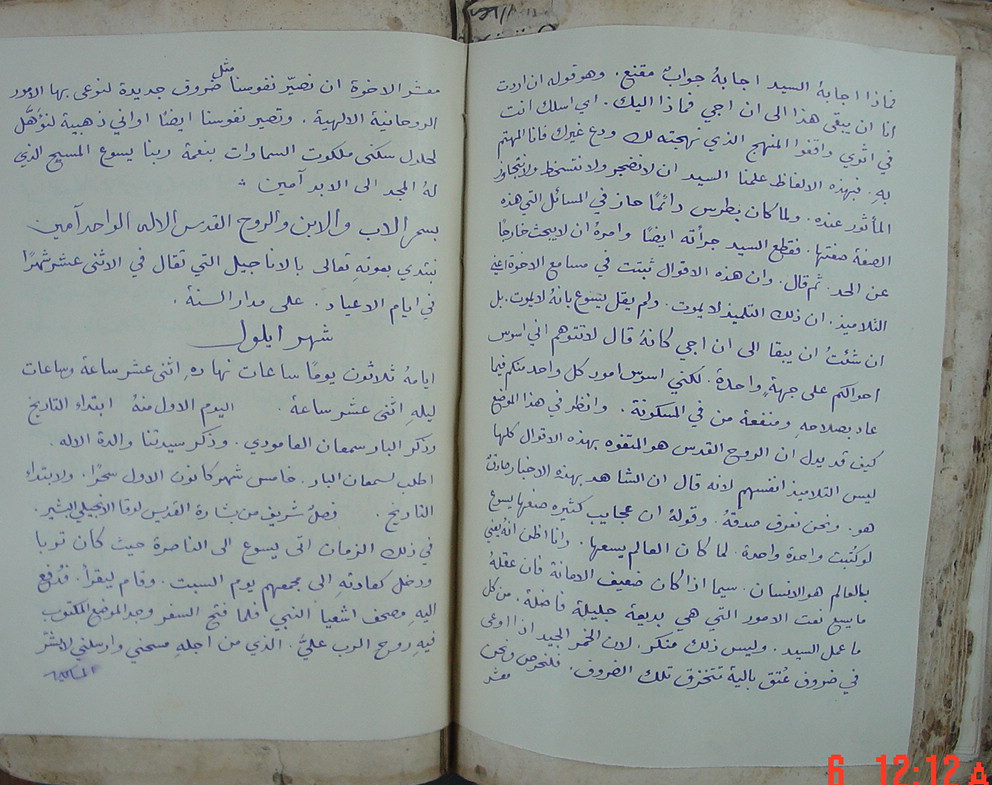 فماذا اجابهُ السيد اجابهُ جوابٌ مقنع. وهو قوله ان اردت
انا ان يبقى هذا الى ان اجي فماذا اليك. اي اسلك انت
في اثري واقفوا المنهج الذي نهجته لك ودع غيرك فانا المهتم
بهِ. فبهذه الالفاظ علمنا السيد ان لانضجر ولا نتسخط ولا نتجاوز
المأثور عنده. ولما كان بطرس دائمًا حاز في المسائل التي هذه
الصفة صفتها. فقطع السيد جرأته ايضًا وامرهُ ان لايبحث خارجًا
عن الحد. ثم قال. وان هذه الاقوال ثبتت في مسامع الاخوة اعني
التلاميذ. ان ذلك التلميذ لايموت. ولم يقل يسوع بانهُ لايموت. بل
ان شئتُ ان يبقا الى ان اجي كانهُ قال لاتتوهم اني اسوس
احوالكم على جهةٍ واحدة. لكني اسوس امور كل واحد منكم فيما
عاد بصلاحهِ ومنفعة من في المسكونة. وانظر في هذا الموضع
كيف قد يدل ان الروح القدس هو المتفوه بهذه الاقوال كلها
ليس التلاميذ انفسهم لانه قال ان الشاهد بهذه الاخبار صادقٌ
هو. ونحن نعرف صدقهُ. وقولهُ ان عجايب كثيره صنعها يسوع
لو كتبت واحدة واحدة. لما كان العالم يسعها. وانا اظن انهُ يعني
بالعالم هو الانسان. سيما اذا كان ضعيف الامانة فان عقلهُ
مايسع نعت الامور التي هي بديعة جليلة فاضلة. من كل
ما عمل السيد. وليس ذلك منكر. لان الخمر الجيد اذا اوعى
في ضروف عُتق بالية تتخزق تلك الضروف. فلنحرص ونحن
معشر
معشر الاخوة ان نصيّر نفوسنا مثل ضروق جديدة لنوعى بها الامور
الروحانية الالهية. وتصير نفوسنا ايضًا اواني ذهبية لنؤهَّل
لحلول سكنى ملكوت السماوات بنعمة ربنا يسوع المسيح الذي
لهُ المجد الى الابد آمين
بسم الاب والابن والروح القدس الاله الواحد آمين
نبتدي بعونهِ تعالى بالاناجيل التي تقال في الاثنى عشر شهرًا
في ايام الاعياد. على مدار السنة.
شهر ايلول
ايامهُ ثلاثون يومًا ساعات نهاره اثنى عشر ساعة وساعات
ليله اثنى عشر ساعة. اليوم الاول منهُ ابتداء التاريخ
وذكر البار سمعان العامودي. وذكر سيدتنا والدة الاله.
اطلب لسمعان البار. خامس شهر كانون الاول سحرًا. ولابتداء
التاريخ. فصلٌ شريف من بشارة القديس لوقا الانجيلي البشير.
في ذلك الزمان اتى يسوع الى الناصرة حيث كان تربا
ودخل كعادتهِ الى مجمعهم يوم السبت. وقام ليقرأ. فدُفع
اليهِ مصحف اشعيا النبي فلما فتح السفر وجد الموضع المكتوب
فيهِ روح الرب عليَّ. الذي من اجلهِ مسحني وارسلني لابشّر
المساكين
6 12:12